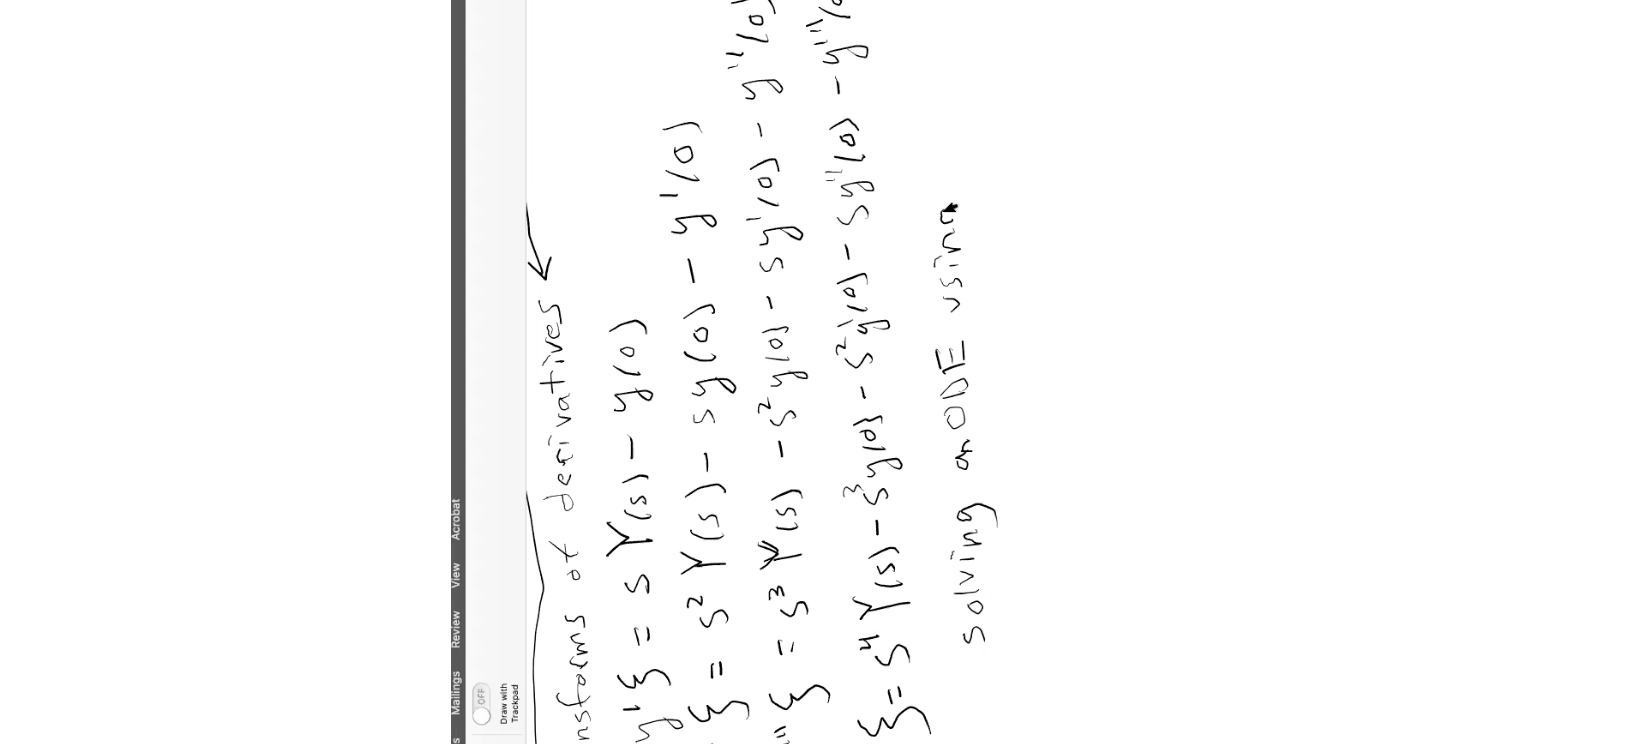 s Mailings Review View Acrobat
OFF
Draw with
Trackpad
nsforms of derivatives
y'} = s Y(s) - y(0)
} = s² Y(s) - sy(0) - y'(0)
'''} = s³ Y(s) - s²y(0) - sy'(0) - y''(0)
} = s⁴ Y(s) - s³y(0) - s²y'(0) - sy''(0) - y'''(0
solving an ODE using